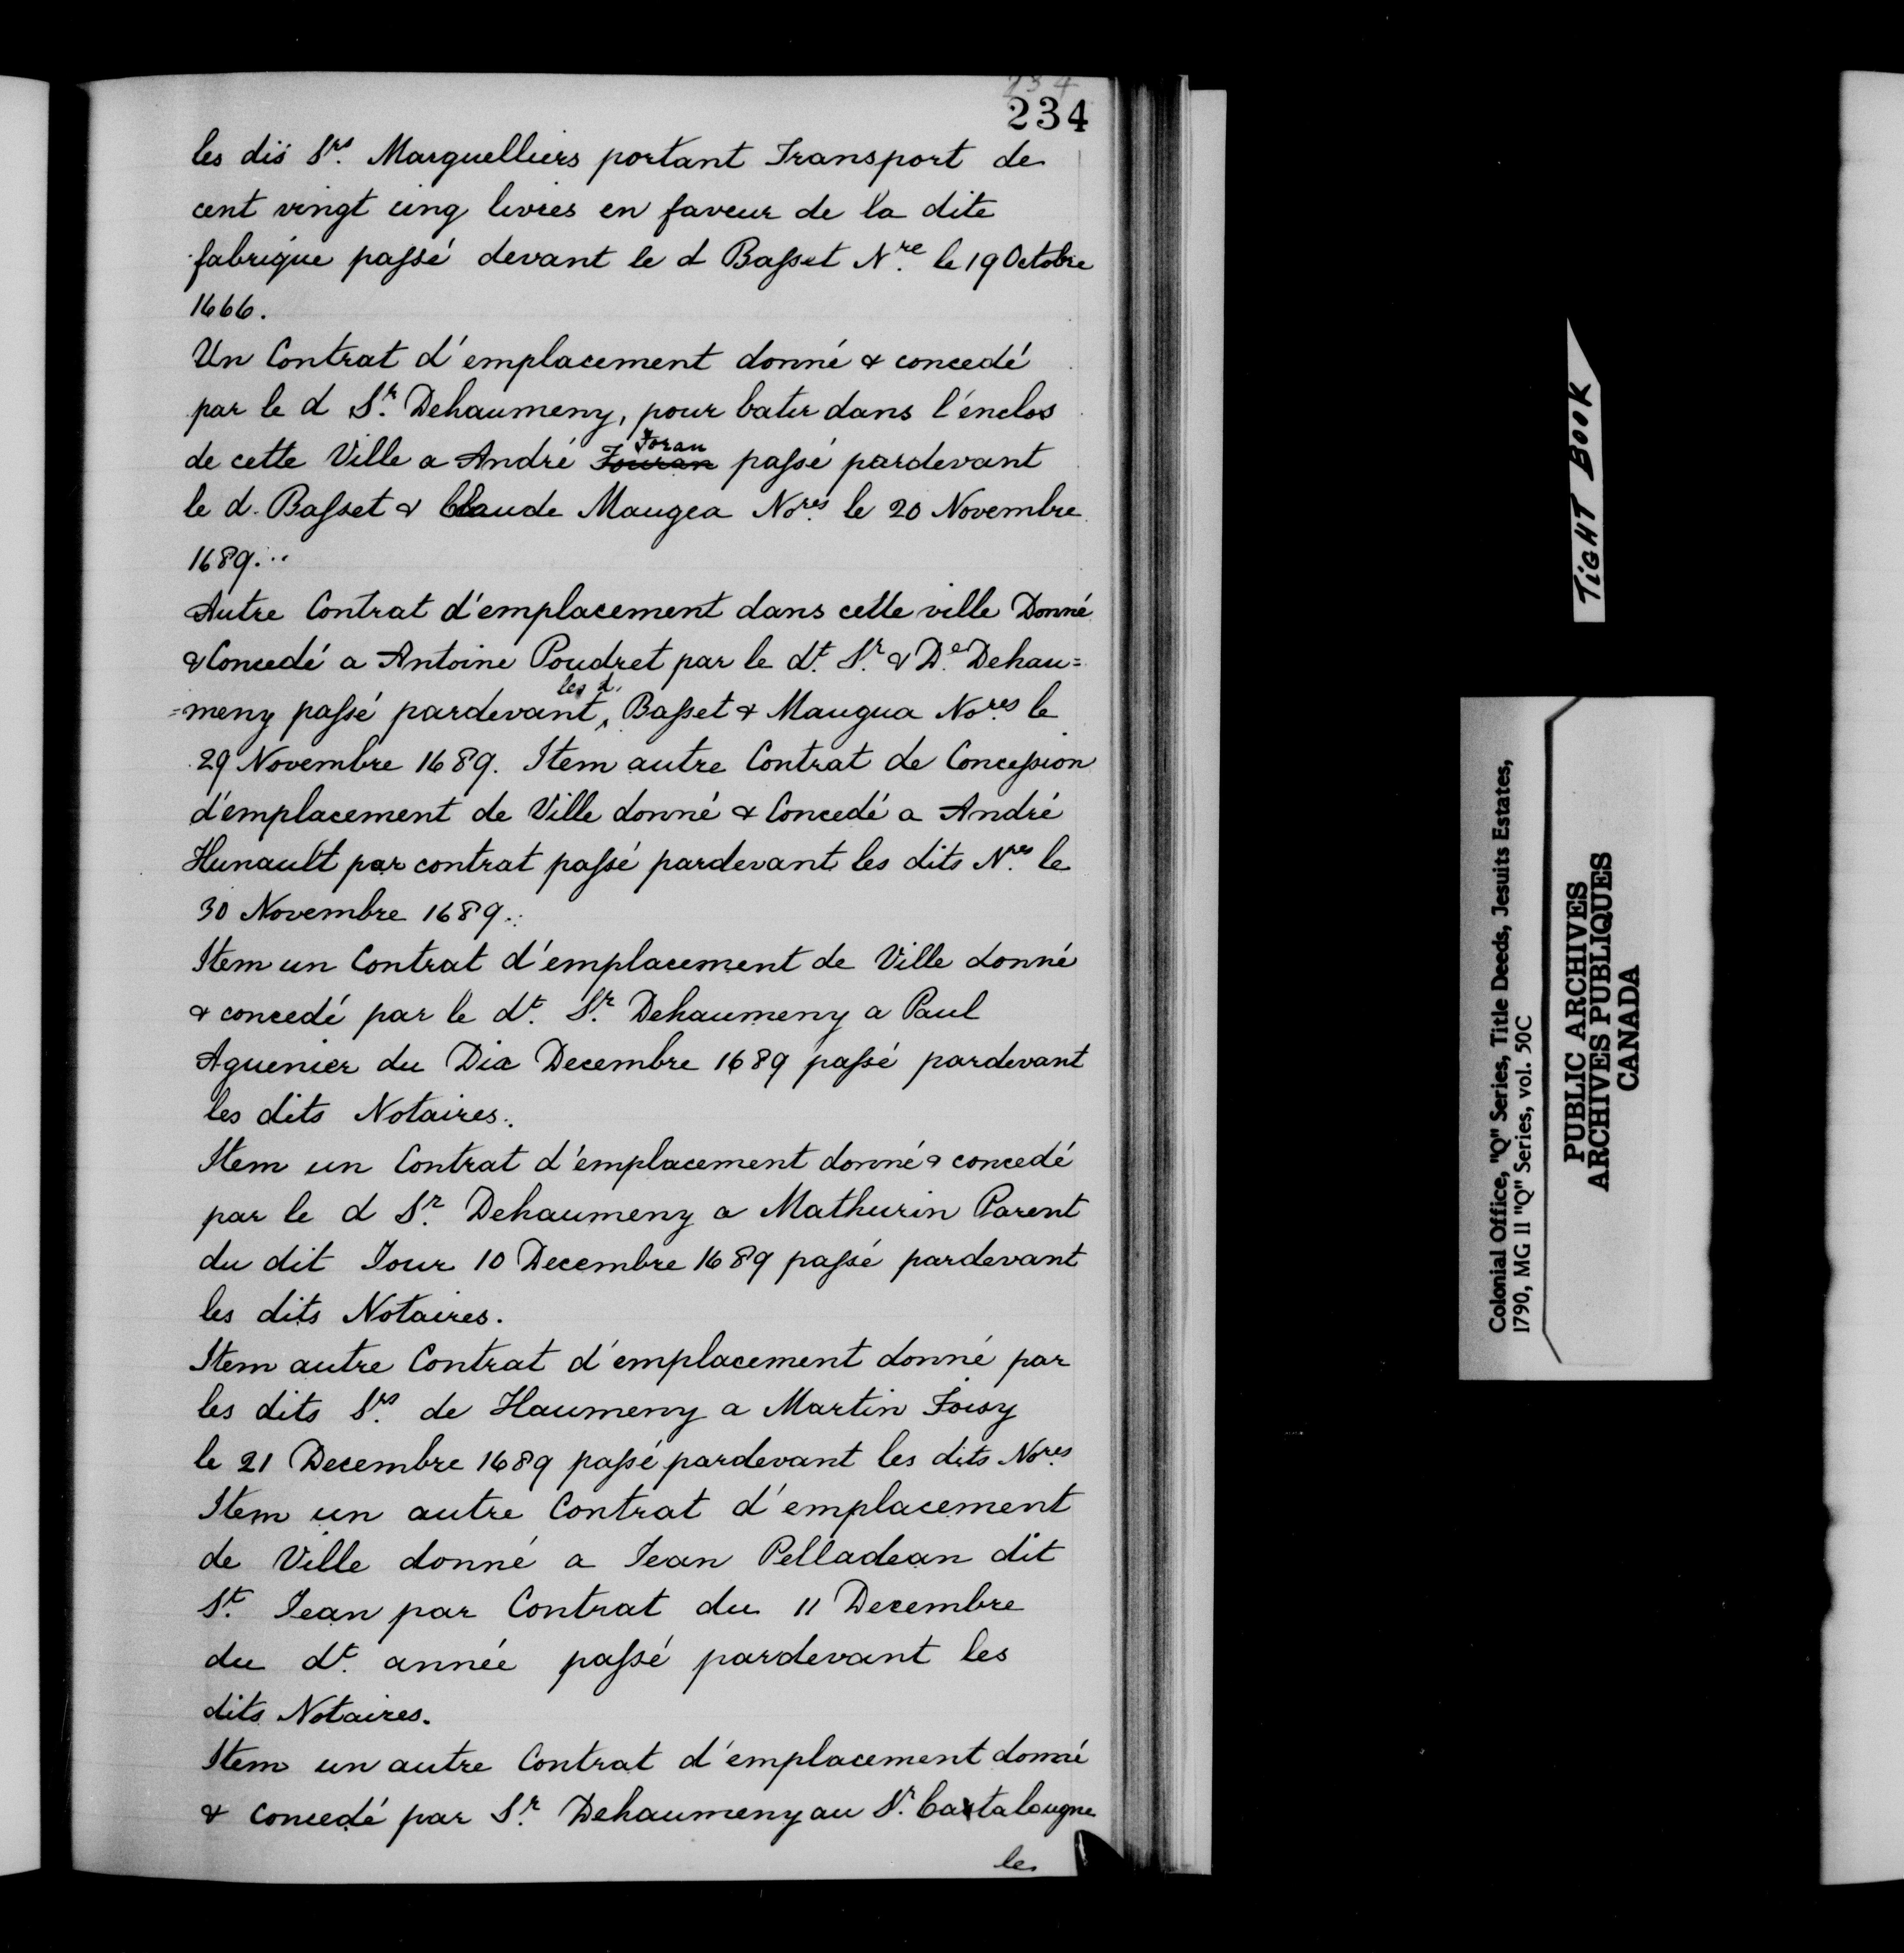 234
234
les dis Srs. Marguelliers portant Transport de
cent vingt cinq livres en faveur de la dite
fabrique passé devant le d Basset Nre. le 19 Octobre
1666.
Un Contrat d'emplacement donné & concedé
par le d Sr. Dehaumeny, pour batir dans l'énclos
Foran
de cette Ville a André Fouran passé pardevant
le d. Basset & Claude Maugea Nores. le 20 Novembre
1689...
Autre Contrat d'emplacement dans cette ville Donné
& Concedé a Antoine Poudret par le dt. Sr. & De. Dehau=
les d.
=meny passé pardevant, Basset & Maugua Nores. le
29 Novembre 1689. Item autre Contrat de Concession
d'emplacement de Ville donné & Concedé a André
Hunault par contrat passé pardevant les dits Nres. le
30 Novembre 1689.
Item un Contrat d'emplacement de Ville donné
& concedé par le dt. Sr. Dehaumeny a Paul
Aguenier du Dix Decembre 1689 passé pardevant
les dits Notaires.
Item un Contrat d'emplacement donné & concedé
par le d Sr. Dehaumeny a Mathurin Parent
du dit Jour 10 Decembre 1689 passé pardevant
les dits Notaires.
Item autre Contrat d'emplacement donné par
les dits Srs. de Haumeny a Martin Foisy
le 21 Decembre 1689 passé pardevant les dits Nores.
Item un autre Contrat d'emplacement
de Ville donné a Jean Pelladean dit
St. Jean par Contrat du 11 Decembre
du dt. année passé pardevant les
dits Notaires.
Item un autre Contrat d'emplacement donné
& concedé par Sr. Dehaumeny au Sr. Catalougne
le
TIGHT BOOK
Colonial Office, "Q" Series, Title Deeds, Jesuits Estates,
1790, MG 11 "Q" Series, vol. 50C
PUBLIC ARCHIVES
ARCHIVES PUBLIQUES
CANADA